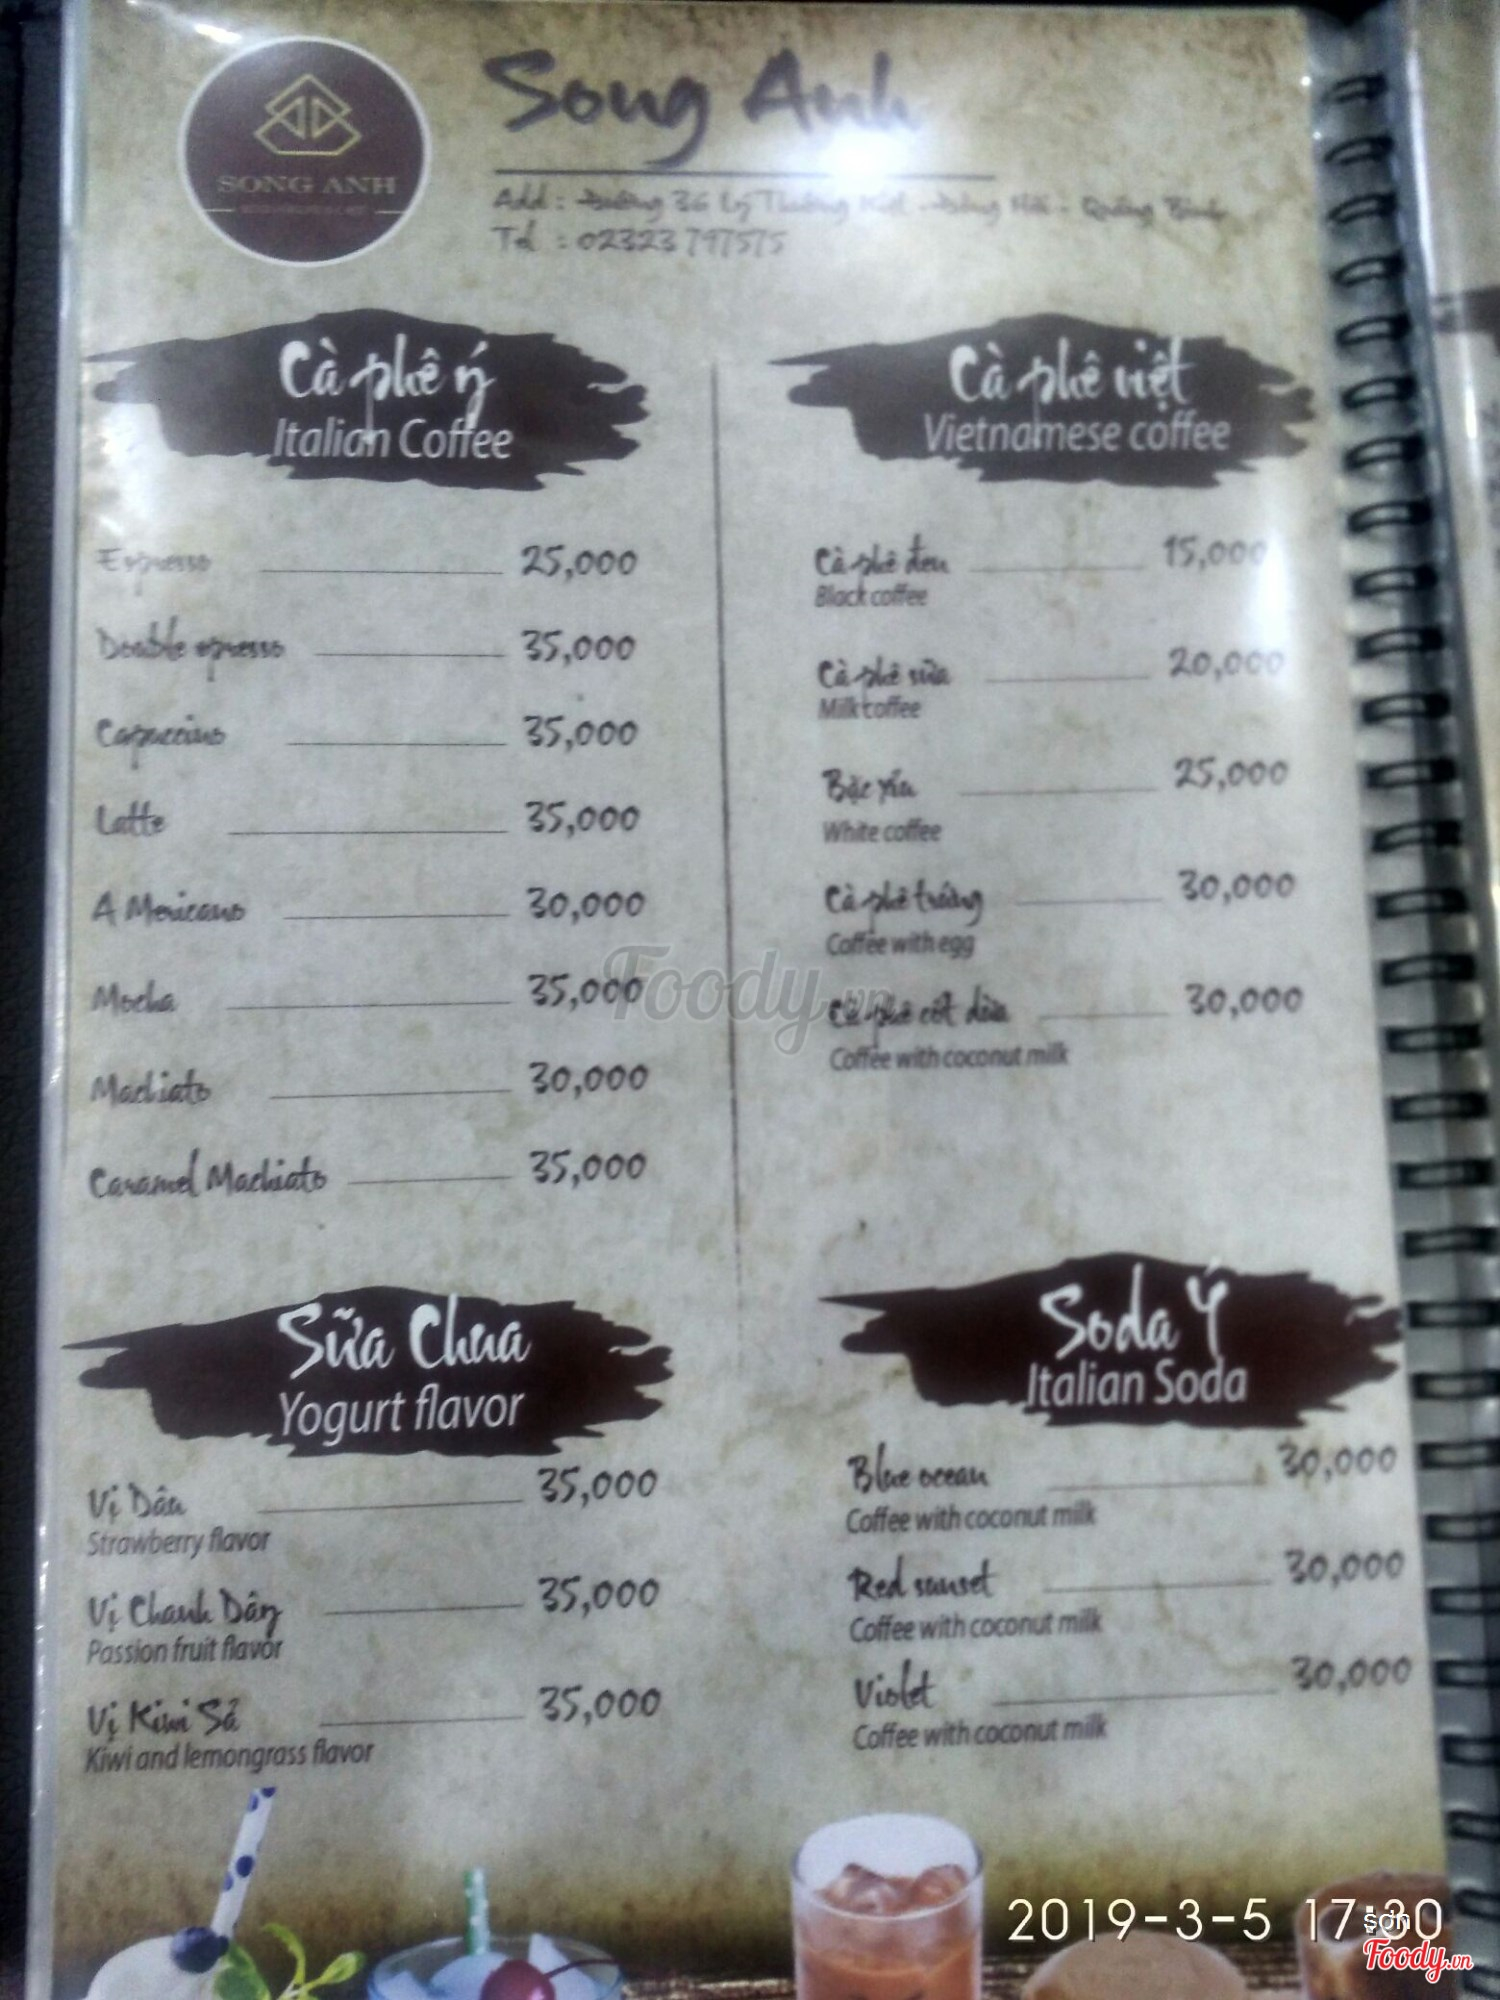 SONG ANH
Song Anh
Add : Đường 36 Lý Thường Kiệt - Đồng Hới - Quảng Bình
Tel : 02323 797575
Cà phê ý
Italian Coffee
Espresso 25,000
Double epresso 35,000
Capuccino 35,000
Latte 35,000
A Mericano 30,000
Mocha 35,000
Machiato 30,000
Caramel Machiato 35,000
Cà phê việt
Vietnamese coffee
Cà phê đen 15,000
Black coffee
Cà phê sữa 20,000
Milk coffee
Bạc xỉu 25,000
White coffee
Cà phê trứng 30,000
Coffee with egg
Cà phê cốt dừa 30,000
Coffee with coconut milk
Foody.vn
Sữa Chua
Yogurt flavor
Vị Dâu 35,000
Strawberry flavor
Vị Chanh Dây 35,000
Passion fruit flavor
Vị Kiwi Sả 35,000
Kiwi and lemongrass flavor
Soda Ý
Italian Soda
Blue ocean 30,000
Coffee with coconut milk
Red sunset 30,000
Coffee with coconut milk
Violet 30,000
Coffee with coconut milk
2019-3-5 17:30
sơn
Foody.vn